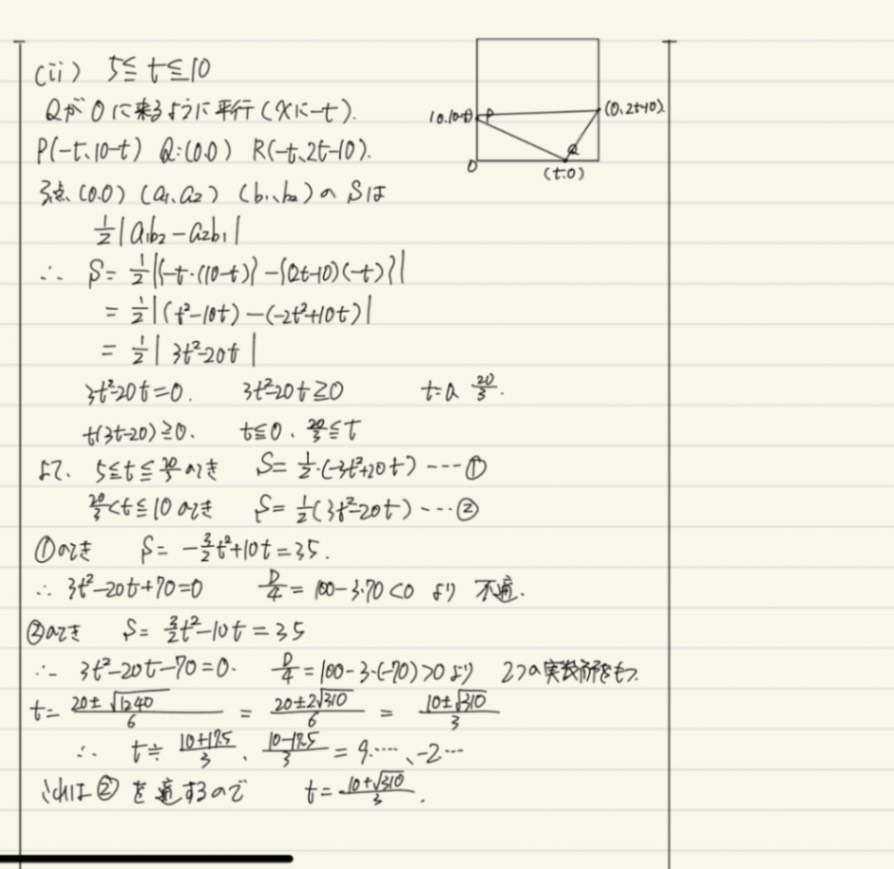 (ii) 5≦t≦10
Qが0に来るように平行(xに-t).
P(-t、10-t) Q:(0.0) R(-t、2t-10).
3点、(0.0) (a₁、a₂) (b₁、b₂)の Sは
1/2|a₁b₂-a₂b₁|
∴ S= 1/2|{-t・(10-t)}-{(2t-10)(-t)}|
= 1/2|(t²-10t)-(-2t²+10t)|
= 1/2|3t²-20t|
3t²-20t=0. 3t²-20t≧0 t=0 20/3.
t(3t-20)≧0. t≦0、20/3≦t
よて、 5≦t≦20/3のとき S= 1/2・(-3t²+20t) ---①
20/3<t≦10のとき S= 1/2(3t²-20t)---②
①のとき S= -3/2t²+10t=35.
∴ 3t²-20t+70=0 D/4=100-3・70<0 より 不適.
②のとき S= 3/2t²-10t=35
∴ 3t²-20t-70=0. D/4=100-3・(-70)>0より 2つの実数解をもつ.
t= 20±√1240/6 = 20±2√310/6 = 10±√310/3
∴ t≒ 10+17.5/3、10-17.5/3 = 9.…、-2…
これは② を適するので t= 10+√310/3.
(0.10-t) P
(0、2t-10).
Q
O
(t.0)